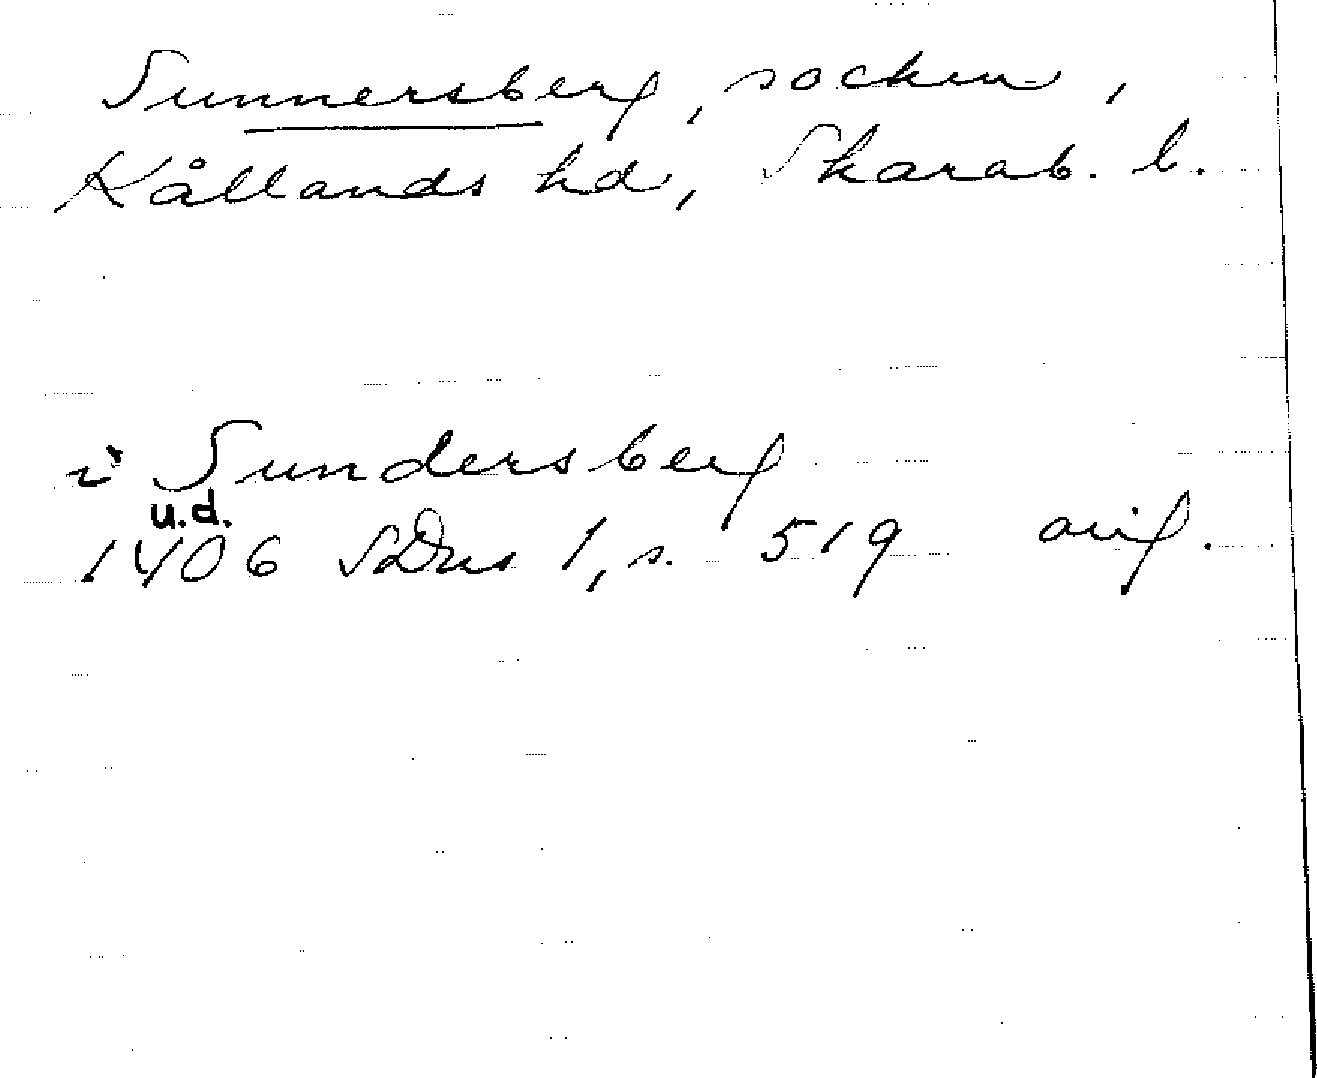 Sunnersberg, socken,
Kållands hd, Skarab. l.
i Sundersberg
u.d.
1406 SDns 1, s. 519 orig.